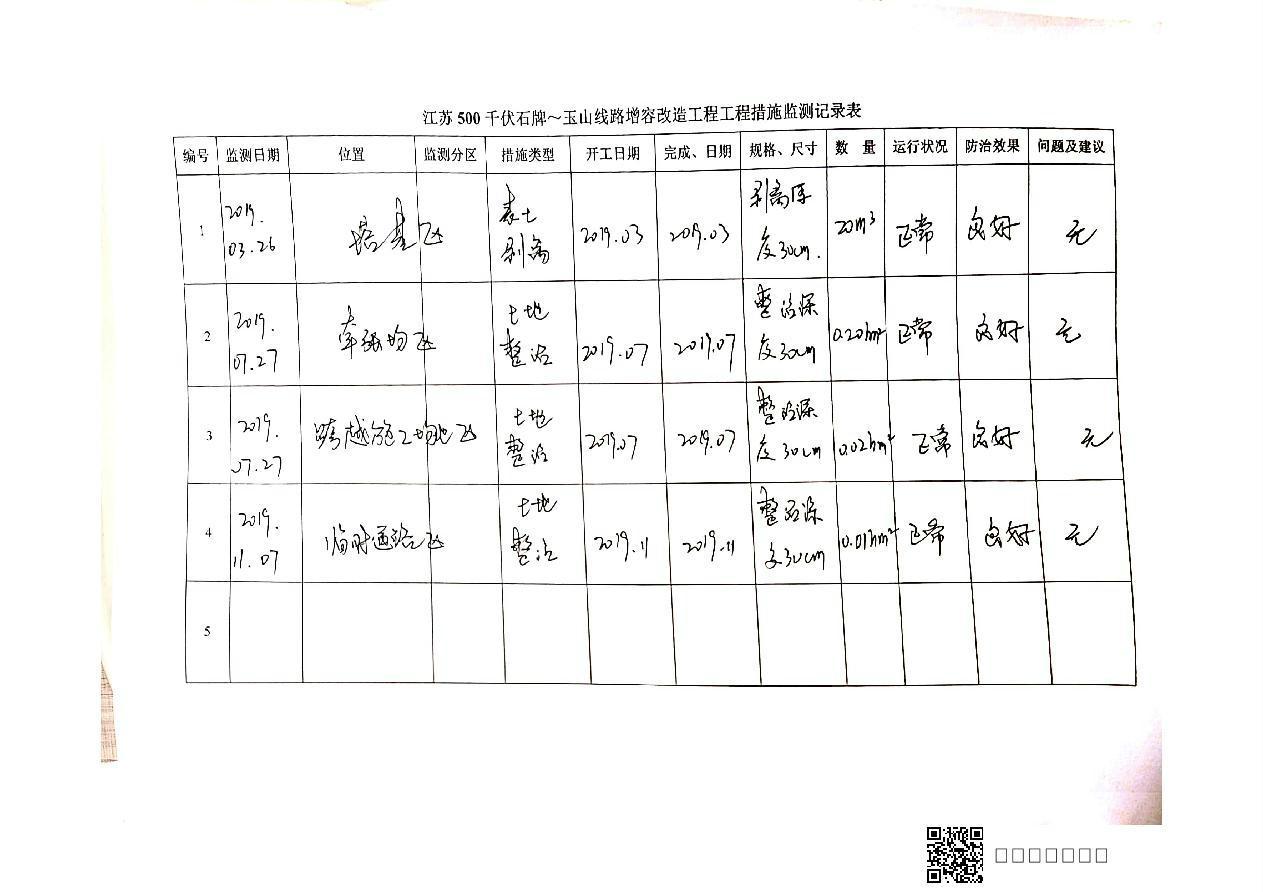 江苏500千伏石牌～玉山线路增容改造工程工程措施监测记录表
编号 监测日期 位置 监测分区 措施类型 开工日期 完成、日期 规格、尺寸 数 量 运行状况 防治效果 问题及建议
1 2019.03.26 塔基区 表土剥离 2019.03 2019.03 剥离厚度30cm. 20m³ 正常 良好 无
2 2019.07.27 牵张场区 土地整治 2019.07 2019.07 整治深度30cm 0.20hm² 正常 良好 无
3 2019.07.27 跨越施工场地区 土地整治 2019.07 2019.07 整治深度30cm 0.02hm² 正常 良好 无
4 2019.11.07 临时道路区 土地整治 2019.11 2019.11 整治深度30cm 0.01hm² 正常 良好 无
5